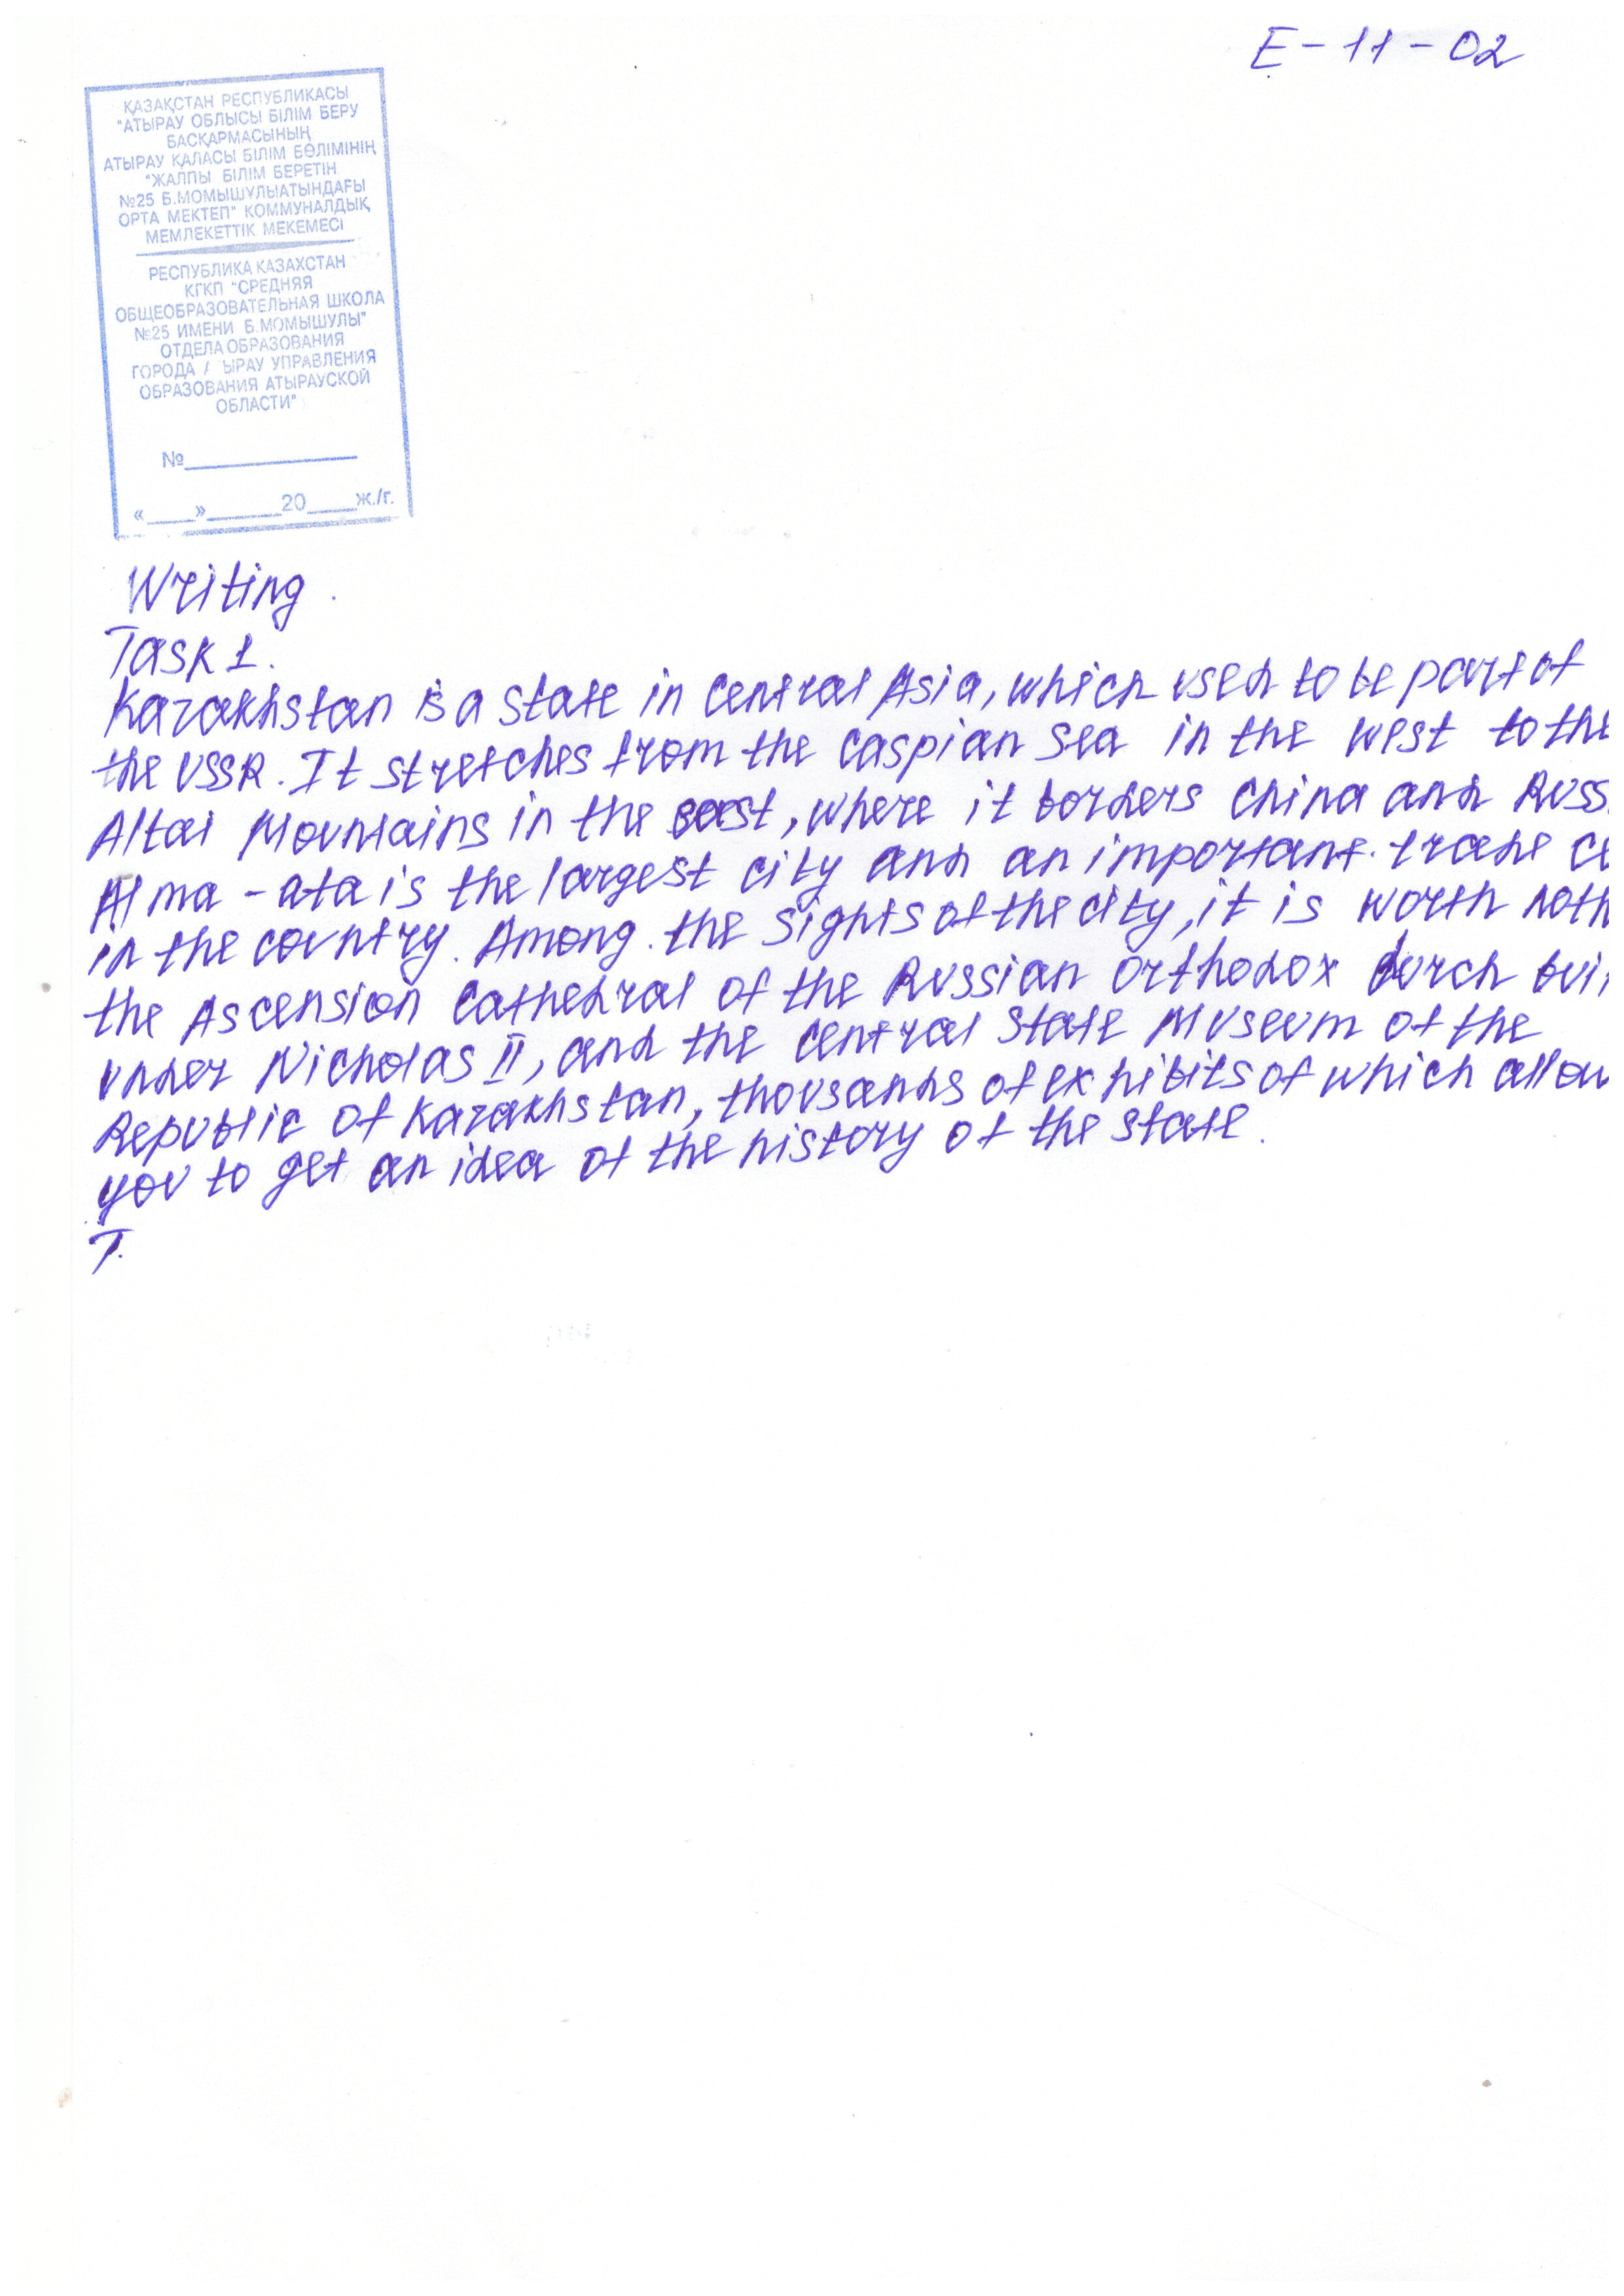 E-11-02
ҚАЗАҚСТАН РЕСПУБЛИКАСЫ
"АТЫРАУ ОБЛЫСЫ БІЛІМ БЕРУ
БАСҚАРМАСЫНЫҢ
АТЫРАУ ҚАЛАСЫ БІЛІМ БӨЛІМІНІҢ
"ЖАЛПЫ БІЛІМ БЕРЕТІН
№25 Б.МОМЫШҰЛЫАТЫНДАҒЫ
ОРТА МЕКТЕП" КОММУНАЛДЫҚ
МЕМЛЕКЕТТІК МЕКЕМЕСІ
РЕСПУБЛИКА КАЗАХСТАН
КГКП "СРЕДНЯЯ
ОБЩЕОБРАЗОВАТЕЛЬНАЯ ШКОЛА
№25 ИМЕНИ Б.МОМЫШУЛЫ"
ОТДЕЛА ОБРАЗОВАНИЯ
ГОРОДА ЫРАУ УПРАВЛЕНИЯ
ОБРАЗОВАНИЯ АТЫРАУСКОЙ
ОБЛАСТИ"
№____________
«____»______20____ж./г.
Writing.
Task 1.
Kazakhstan is a state in Central Asia, which used to be part of
the USSR. It stretches from the Caspian Sea in the west to the
Altai Mountains in the east, where it borders China and Russ
Alma-ata is the largest city and an important trade ce
in the country. Among the sights of the city, it is worth noth
the Ascension Cathedral of the Russian Orthodox buil
under Nicholas II, and the Central State Museum of the
Republic of Kazakhstan, thousands of exhibits of which allow
you to get an idea of the history of the state.
T.